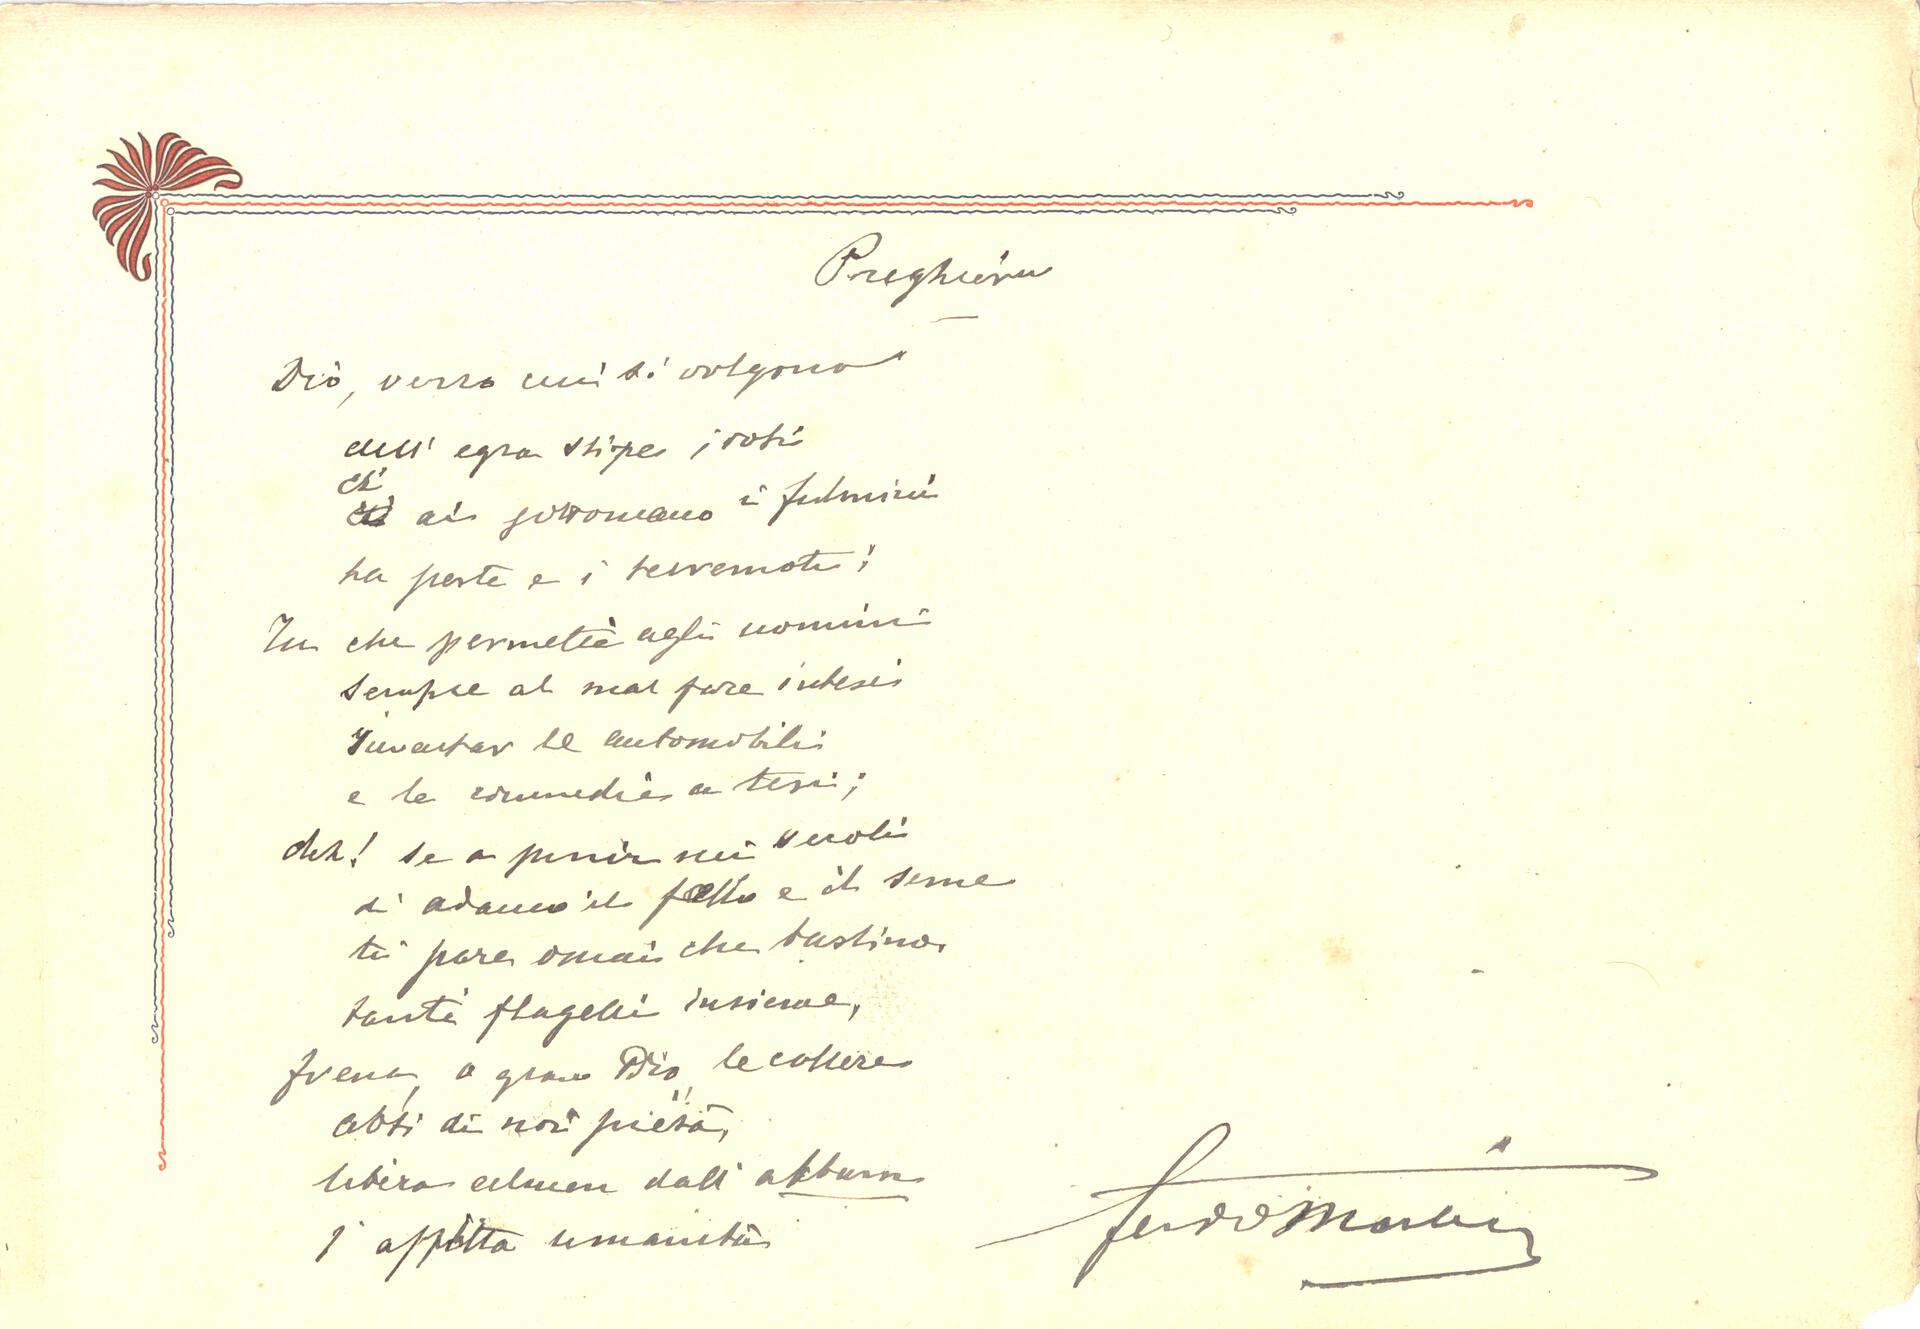 Preghiera
Dio, verso cui si volgono
dell' egra stirpe i voti
ch'
ai governano i fulmini
la peste e i terremoti;
Tu che permetti agli uomini
sempre al mal fare intesi
l'automobili
e le commedie a tesi;
deh! se a punir nei secoli
di adamo il fallo e il seme
ti pare omai che bastino
tanti flagelli insieme,
frena, o gran Dio, le collere
abbi di noi pietà,
libera almen dall' album
l' afflitta umanità
Ferd Martini